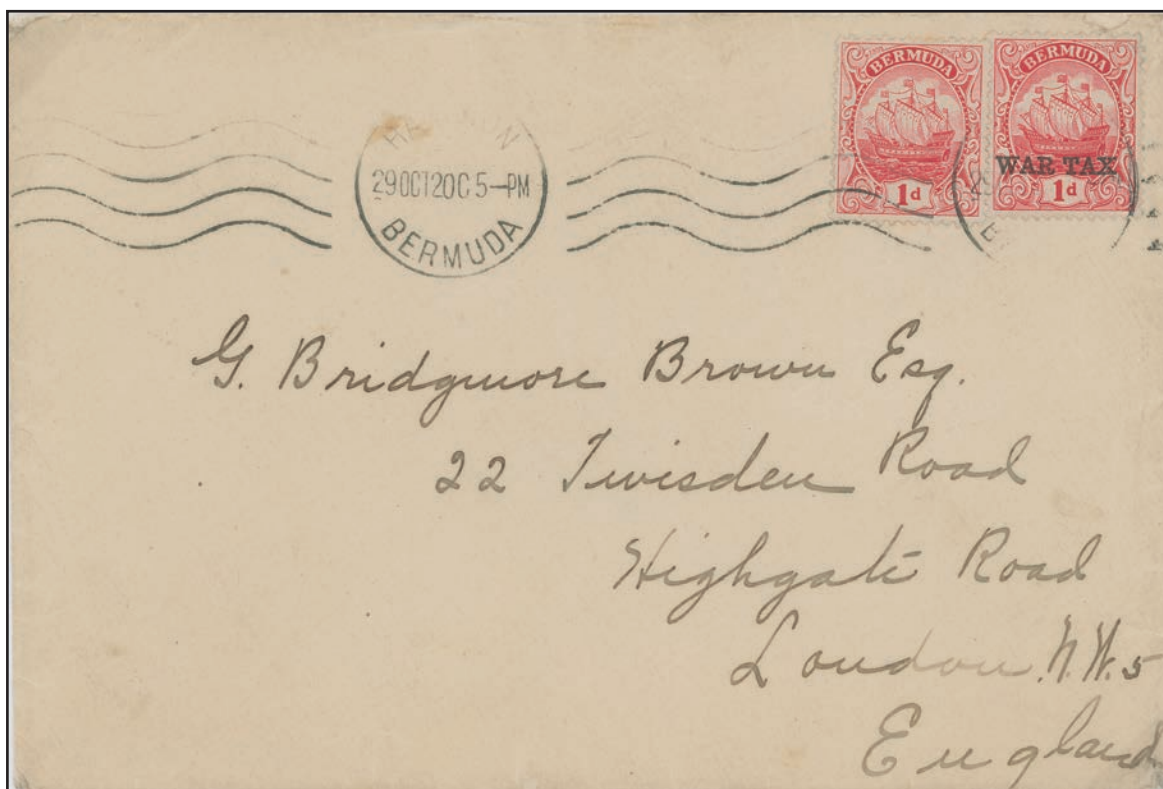 BERMUDA
1d
BERMUDA
WAR TAX
1d
29OCT20C5-PM
BERMUDA
G. Bridgmore Brown Esq.
22 Twisden Road
Highgate Road
London. N.W.5
England